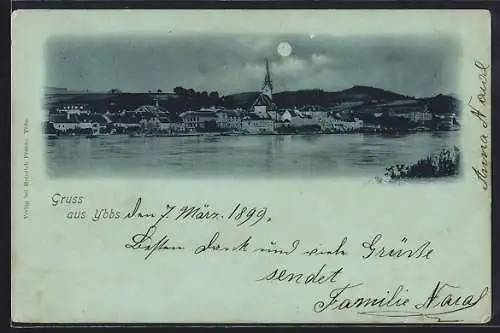 Gruss
aus Ybbs den 7 März 1899.
Besten Dank und viele Grüsse
sendet
Familie
Anna
Verlag bei Heinrich Ybbs.